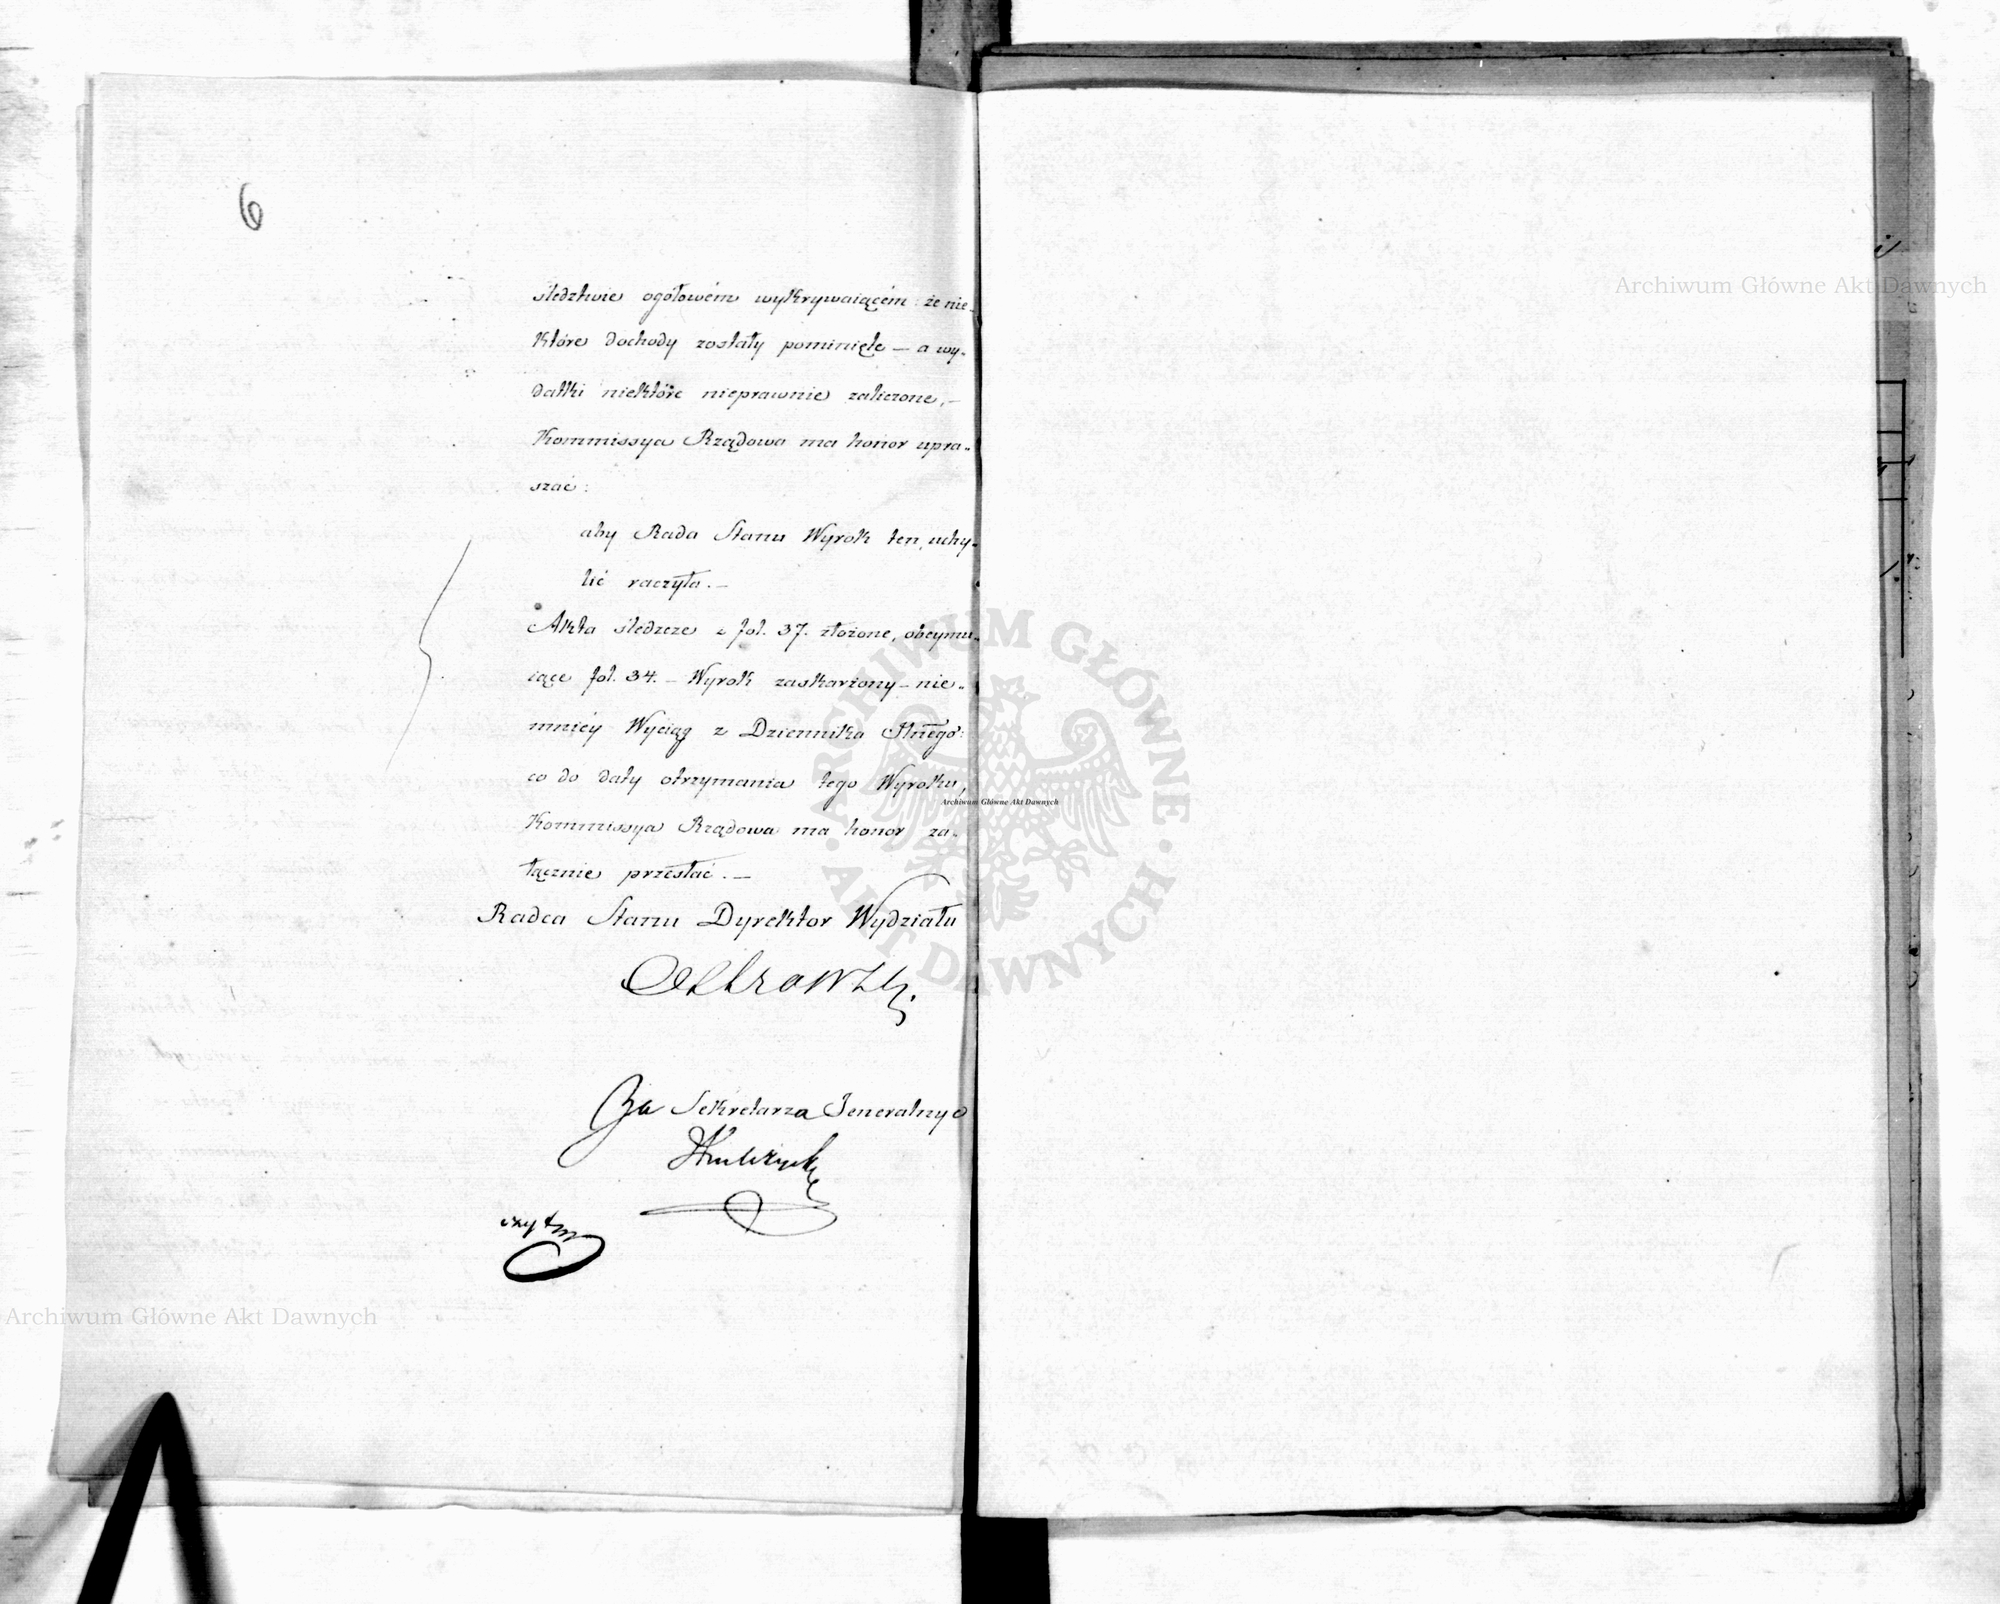 6
śledztwie ogółowém wykrywaiącém: że nie„
które dochody zostały pominięte — a wy„
datki niektóre nieprawnie zaliczone, —
Kommissya Rządowa ma honor upra„
szać:
aby Rada Stanu Wyrok ten, uchy„
lić raczyła. —
Akta śledzcze z fol. 37. złożone, obeymu„
iące fol. 34. — Wyrok zaskarżony — nie„
mniéy Wyciąg z Dziennika
co do daty otrzymania tego Wyroku,
Kommissya Rządowa ma honor za„
łącznie przesłać. —
Radca Stanu Dyrektor Wydziału
Za Sekretarza Jeneralnego
Archiwum Główne Akt Dawnych
Archiwum Główne Akt Dawnych
Archiwum Główne Akt Dawnych
ARCHIWUM GŁÓWNE · AKT DAWNYCH ·